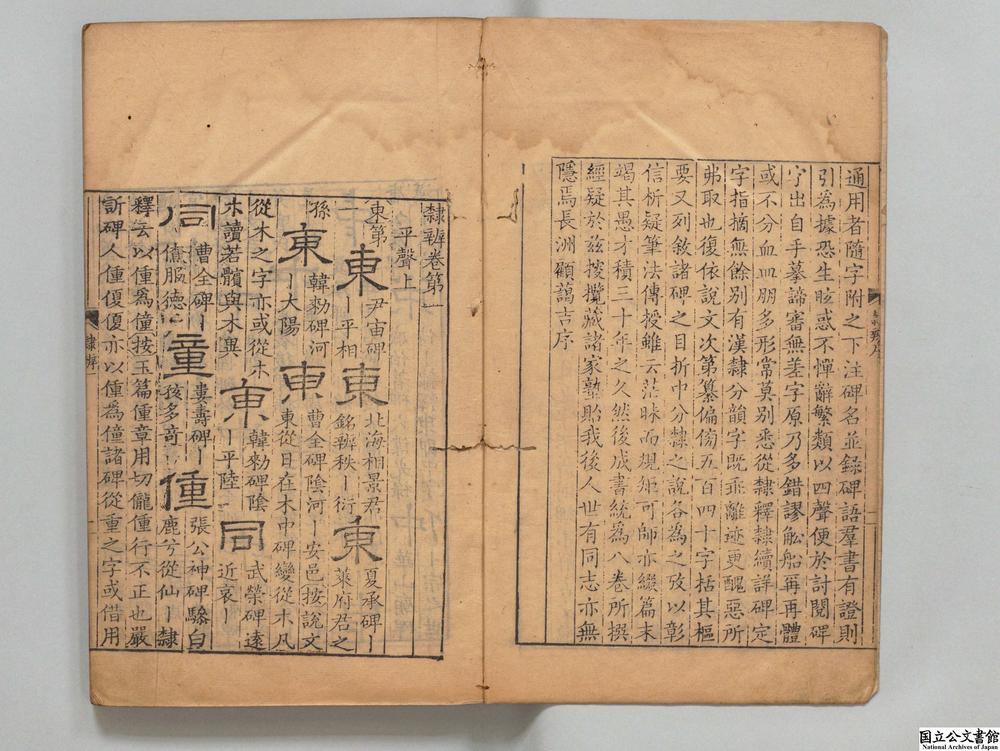 通用者隨字附之下注碑名並録碑語羣書有證則
引為據恐生眩惑不憚辭繁類以四聲便於討閱碑
字出自手摹諦審無差字原乃多錯謬舩船再再體
或不分血皿朋多形常莫别悉從隸釋隸續詳碑定
字指摘無餘别有漢隸分韻字既乖離迹更醜惡所
弗取也復依說文次第纂偏傍五百四十字括其樞
要又列敘諸碑之目折中分隸之說各為之攷以彰
信析疑筆法傳授雖云茫昧而規矩可師亦綴篇末
竭其愚才積三十年之久然後成書統為八卷所撰
經疑於兹搜攬藏諸家塾貽我後人世有同志亦無
隱焉長洲顧藹吉序
隸辨卷第一
平聲上
東第
東 尹宙碑丨平相 東 北海相景君銘辨秩丨衍 東 夏承碑丨萊府君之
孫 東 韓勑碑河丨大陽 東 曹全碑陰河丨安邑按說文東從日在木中碑變從木凡
從木之字亦或從木木讀若髕與木異 東 韓勑碑陰丨平陸 同 武榮碑遠近哀丨
同 曹全碑丨僚服德 僮 婁壽碑丨孩多奇 僮 張公神碑驂白鹿兮從仙丨隸
釋云以僮為僮按玉篇僮章用切儱僮行不正也嚴
訢碑人僮復優亦以僮為僮諸碑從重之字或借用
隸辨
国立公文書館
National Archives of Japan